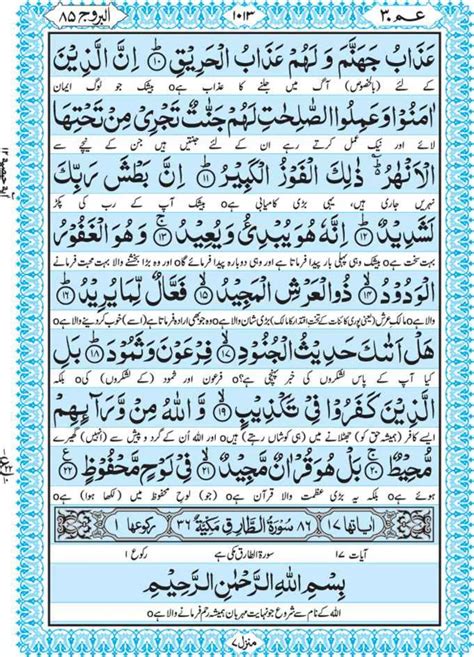 عـم ٣٠ ١٠١٣ البروج ٨٥
عَذَابُ جَهَنَّمَ وَ لَهُمْ عَذَابُ الْحَرِيْقِ ۝١٠ اِنَّ الَّذِيْنَ
کے لئے (بالخصوص) آگ میں جلنے کا عذاب ہےo بیشک جو لوگ ایمان
اٰمَنُوْا وَ عَمِلُوا الصّٰلِحٰتِ لَهُمْ جَنّٰتٌ تَجْرِیْ مِنْ تَحْتِهَا
لائے اور نیک عمل کرتے رہے ان کے لئے جنتیں ہیں جن کے نیچے سے
الْاَنْهٰرُ ؕ ذٰلِكَ الْفَوْزُ الْكَبِيْرُ ۝١١ اِنَّ بَطْشَ رَبِّكَ
نہریں جاری ہیں، یہی بڑی کامیابی ہےo بیشک آپ کے رب کی پکڑ
لَشَدِيْدٌ ۝١٢ اِنَّهٗ هُوَ يُبْدِئُ وَ يُعِيْدُ ۝١٣ وَ هُوَ الْغَفُوْرُ
بہت سخت ہےo بیشک وہی پہلی بار پیدا فرماتا ہے اور وہی دوبارہ پیدا فرمائے گاo اور وہ بڑا بخشنے والا بہت محبت فرمانے
الْوَدُوْدُ ۝١٤ ذُو الْعَرْشِ الْمَجِيْدُ ۝١٥ فَعَّالٌ لِّمَا يُرِيْدُ ۝١٦
والا ہےo مالکِ عرش (یعنی پوری کائنات کے تختِ اقتدار کا مالک) بڑی شان والا ہےo وہ جو بھی ارادہ فرماتا ہے (اسے) خوب کر دینے والا ہےo
هَلْ اَتٰىكَ حَدِيْثُ الْجُنُوْدِ ۝١٧ فِرْعَوْنَ وَ ثَمُوْدَ ۝١٨ بَلِ
کیا آپ کے پاس لشکروں کی خبر پہنچی ہے؟o فرعون اور ثمود (کے لشکروں) کیo بلکہ
الَّذِيْنَ كَفَرُوْا فِیْ تَكْذِيْبٍ ۝١٩ وَّ اللّٰهُ مِنْ وَّرَآىِٕهِمْ
ایسے کافر (ہمیشہ حق کو) جھٹلانے میں (ہی کوشاں رہتے) ہیںo اور اللہ اُن کے گرد و پیش سے (انہیں) گھیرے
مُّحِيْطٌ ۝٢٠ بَلْ هُوَ قُرْاٰنٌ مَّجِيْدٌ ۝٢١ فِیْ لَوْحٍ مَّحْفُوْظٍ ۝٢٢
ہوئے ہےo بلکہ یہ بڑی عظمت والا قرآن ہےo (جو) لوحِ محفوظ میں (لکھا ہوا) ہےo
اٰیاتها ١٧ ٨٦ سُوْرَةُ الطَّارِقِ مَكِّيَّةٌ ٣٦ رکوعها ١
آیات ١٧ سورۃ الطارق مکی ہے رکوع ١
بِسْمِ اللّٰهِ الرَّحْمٰنِ الرَّحِيْمِ
اللہ کے نام سے شروع جو نہایت مہربان ہمیشہ رحم فرمانے والا ہےo
منزل ٧